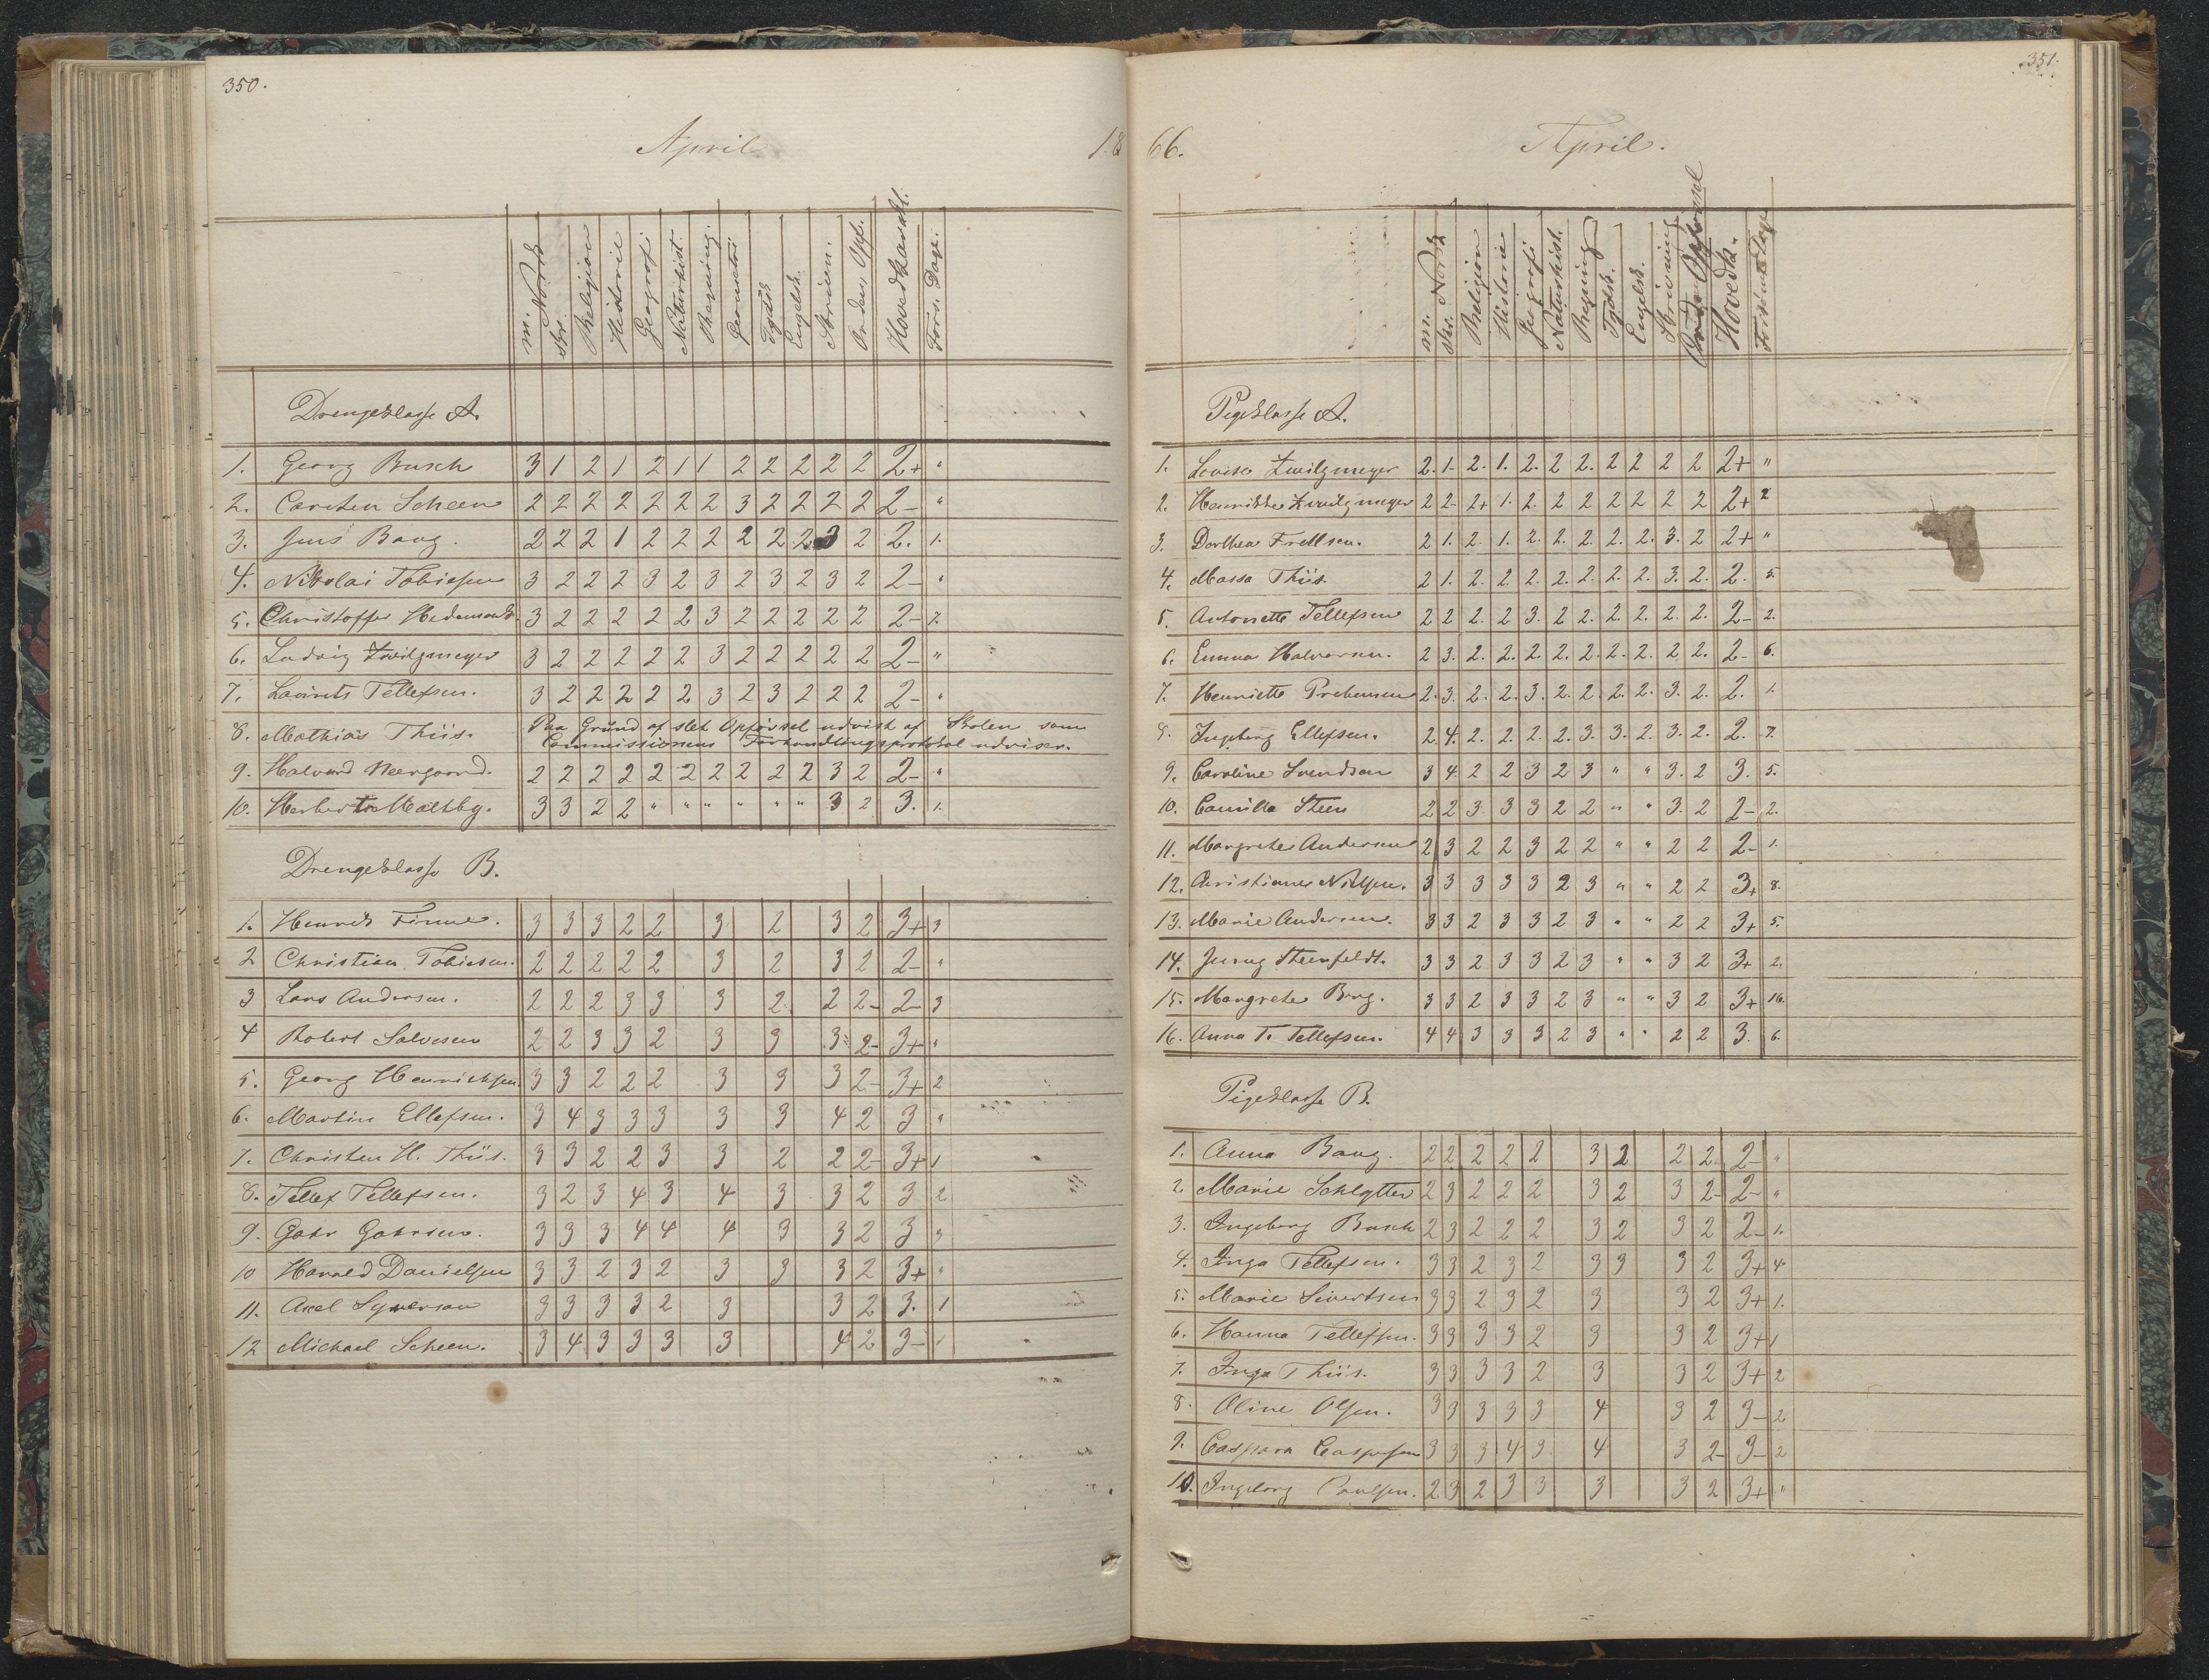 350.
April
18
m. Norsk
Skr.
Religion
Historie
Geografi
Naturhist.
Regning.
Geometri
Tydsk
Engelsk.
Skrivn.
Orden, Opf.
Hovedkarakt.
Fors. Dage.
Drengeklasse A.
1. Georg Busch 3 1 2 1 2 1 1 2 2 2 2 2 2+ "
2. Carsten Scheen 2 2 2 2 2 2 2 3 2 2 2 2 2- "
3. Jens Bang. 2 2 2 1 2 2 2 2 2 2 3 2 2. 1.
4. Nikolai Tobiesen 3 2 2 2 3 2 3 2 3 2 3 2 2- "
5. Christoffer Hedemark 3 2 2 2 2 2 3 2 2 2 2 2 2- 7.
6. Ludvig Zwilgmeyer 3 2 2 2 2 2 3 2 2 2 2 2 2- "
7. Lavrits Tellefsen. 3 2 2 2 2 2 3 2 3 2 2 2 2- "
8. Mathias Thiis. Paa Grund af slet Opførsel udvist af Skolen som
Commissionens Forhandlingsprotokol udviser.
9. Halvard Neergaard. 2 2 2 2 2 2 2 2 2 2 3 2 2- "
10. Herbert Maltby. 3 3 2 2 " " " " " " 3 2 3. 1.
Drengeklasse B.
1. Henrik Finne. 3 3 3 2 2 3 2 3 2 3+ 3
2 Christian Tobiesen. 2 2 2 2 2 3 2 3 2 2- "
3 Lars Andersen. 2 2 2 3 3 3 2 2 2- 2- 3
4 Robert Salvesen 2 2 3 3 2 3 3 3 2- 3+ "
5. Georg Henrichsen. 3 3 2 2 2 3 3 3 2- 3+ 2
6. Martin Ellefsen. 3 4 3 3 3 3 3 4 2 3 "
7. Christen H. Thiis. 3 3 2 2 3 3 2 2 2- 3+ 1
8. Tellef Tellefsen. 3 2 3 4 3 4 3 3 2 3 2
9. Gahr Gahrsen. 3 3 3 4 4 4 3 3 2 3 "
10 Harald Danielsen 3 3 2 3 2 3 3 3 2 3+ "
11. Axel Syversen 3 3 3 3 2 3 3 2 3. 1
12 Michael Scheen. 3 4 3 3 3 3 4 2 3- 1
351.
66.
April.
m. Norsk
Skr.
Religion
Historie
Geografi
Naturhist.
Regning
Tydsk.
Engelsk.
Skrivning
Orden Opførsel
Hovedk.
Forsømte Dage
Pigeklasse A.
1. Lovise Zwilgmeyer 2. 1. 2. 1. 2. 2 2. 2 2 2 2 2+ "
2. Henrikke Zwilgmeyer 2 2- 2+ 1. 2. 2 2 2 2 2 2 2+ 2
3. Dorthea Frellsen. 2 1. 2. 1. 2. 2. 2. 2. 2. 3. 2 2+ "
4. Massa Thiis. 2 1. 2. 2. 2. 2. 2. 2. 2. 3. 2. 2. 5.
5. Antonette Tellefsen 2 2 2. 2 3. 2 2. 2. 2. 2. 2. 2- 2.
6. Emma Halvorsen. 2 3. 2. 2. 2. 2. 2. 2. 2. 2. 2. 2- 6.
7. Henriette Prebensen 2. 3. 2. 2. 3. 2. 2. 2. 2. 3. 2. 2. 1.
8. Ingeborg Ellefsen. 2. 4. 2. 2. 2. 2. 3. 3. 2. 3. 2. 2. 7.
9. Caroline Svendsen 3 4. 2 2 3 2 3 " " 3. 2 3. 5.
10. Camilla Steen 2 2 3. 3 3 2 2 " " 3. 2 2- 2.
11. Margrethe Andersen 2 3 2 2 3 2 2 " " 2 2 2- 1.
12. Christiane Nielsen. 3 3 3 3 3 2 3 " " 2 2 3+ 8.
13. Marie Andersen. 3 3 2 3 3 2 3 " " 2 2 3+ 5.
14. Jenny Steenfeldt. 3 3 2 3 3 2 3 " " 3 2 3+ 2.
15. Margrethe Berg. 3 3 2 3 3 2 3 " " 3 2 3+ 16.
16. Anna T. Tellefsen. 4 4 3 3 3 2 3 " " 2 2 3. 6.
Pigeklasse B.
1. Anna Bang. 2 2 2 2 2 3 2 2 2 2- "
2. Marie Schlytter 2 3 2 2 2 3 2 3 2- 2- "
3. Ingeborg Busch 2 3 2 2 2 3 2 3 2 2- 1.
4. Inga Tellefsen. 3 3 2 3 2 3 3 3 2 3+ 4.
5. Marie Sivertsen 3 3 2 3 2 3 3 2 3+ 1.
6. Hanna Tellefsen. 3 3 3 3 2 3 3 2 3+ 1
7. Inga Thiis. 3 3 3 3 2 3 3 2 3+ 2
8. Oline Olsen. 3 3 3 3 3 4 3 2 3- 2
9. Caspara Caspersen 3 3 3 4 3 4 3 2- 3- 2
10. Ingeborg Paulsen. 2 3 2 3 3 3 3 2 3+ "